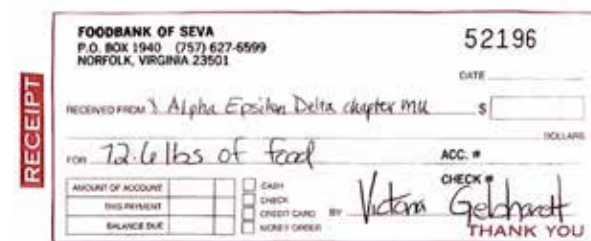 FOODBANK OF SEVA
P.O. BOX 1940 (757) 627-6599
NORFOLK, VIRGINIA 23501
52196
RECEIPT
DATE
RECEIVED FROM Alpha Epsilon Delta chapter MU $
DOLLARS
FOR 72.6 lbs of food
ACC. #
AMOUNT OF ACCOUNT
THIS PAYMENT
BALANCE DUE
CASH
CHECK
CREDIT CARD
MONEY ORDER
CHECK #
BY Victoria Gelchardt
THANK YOU